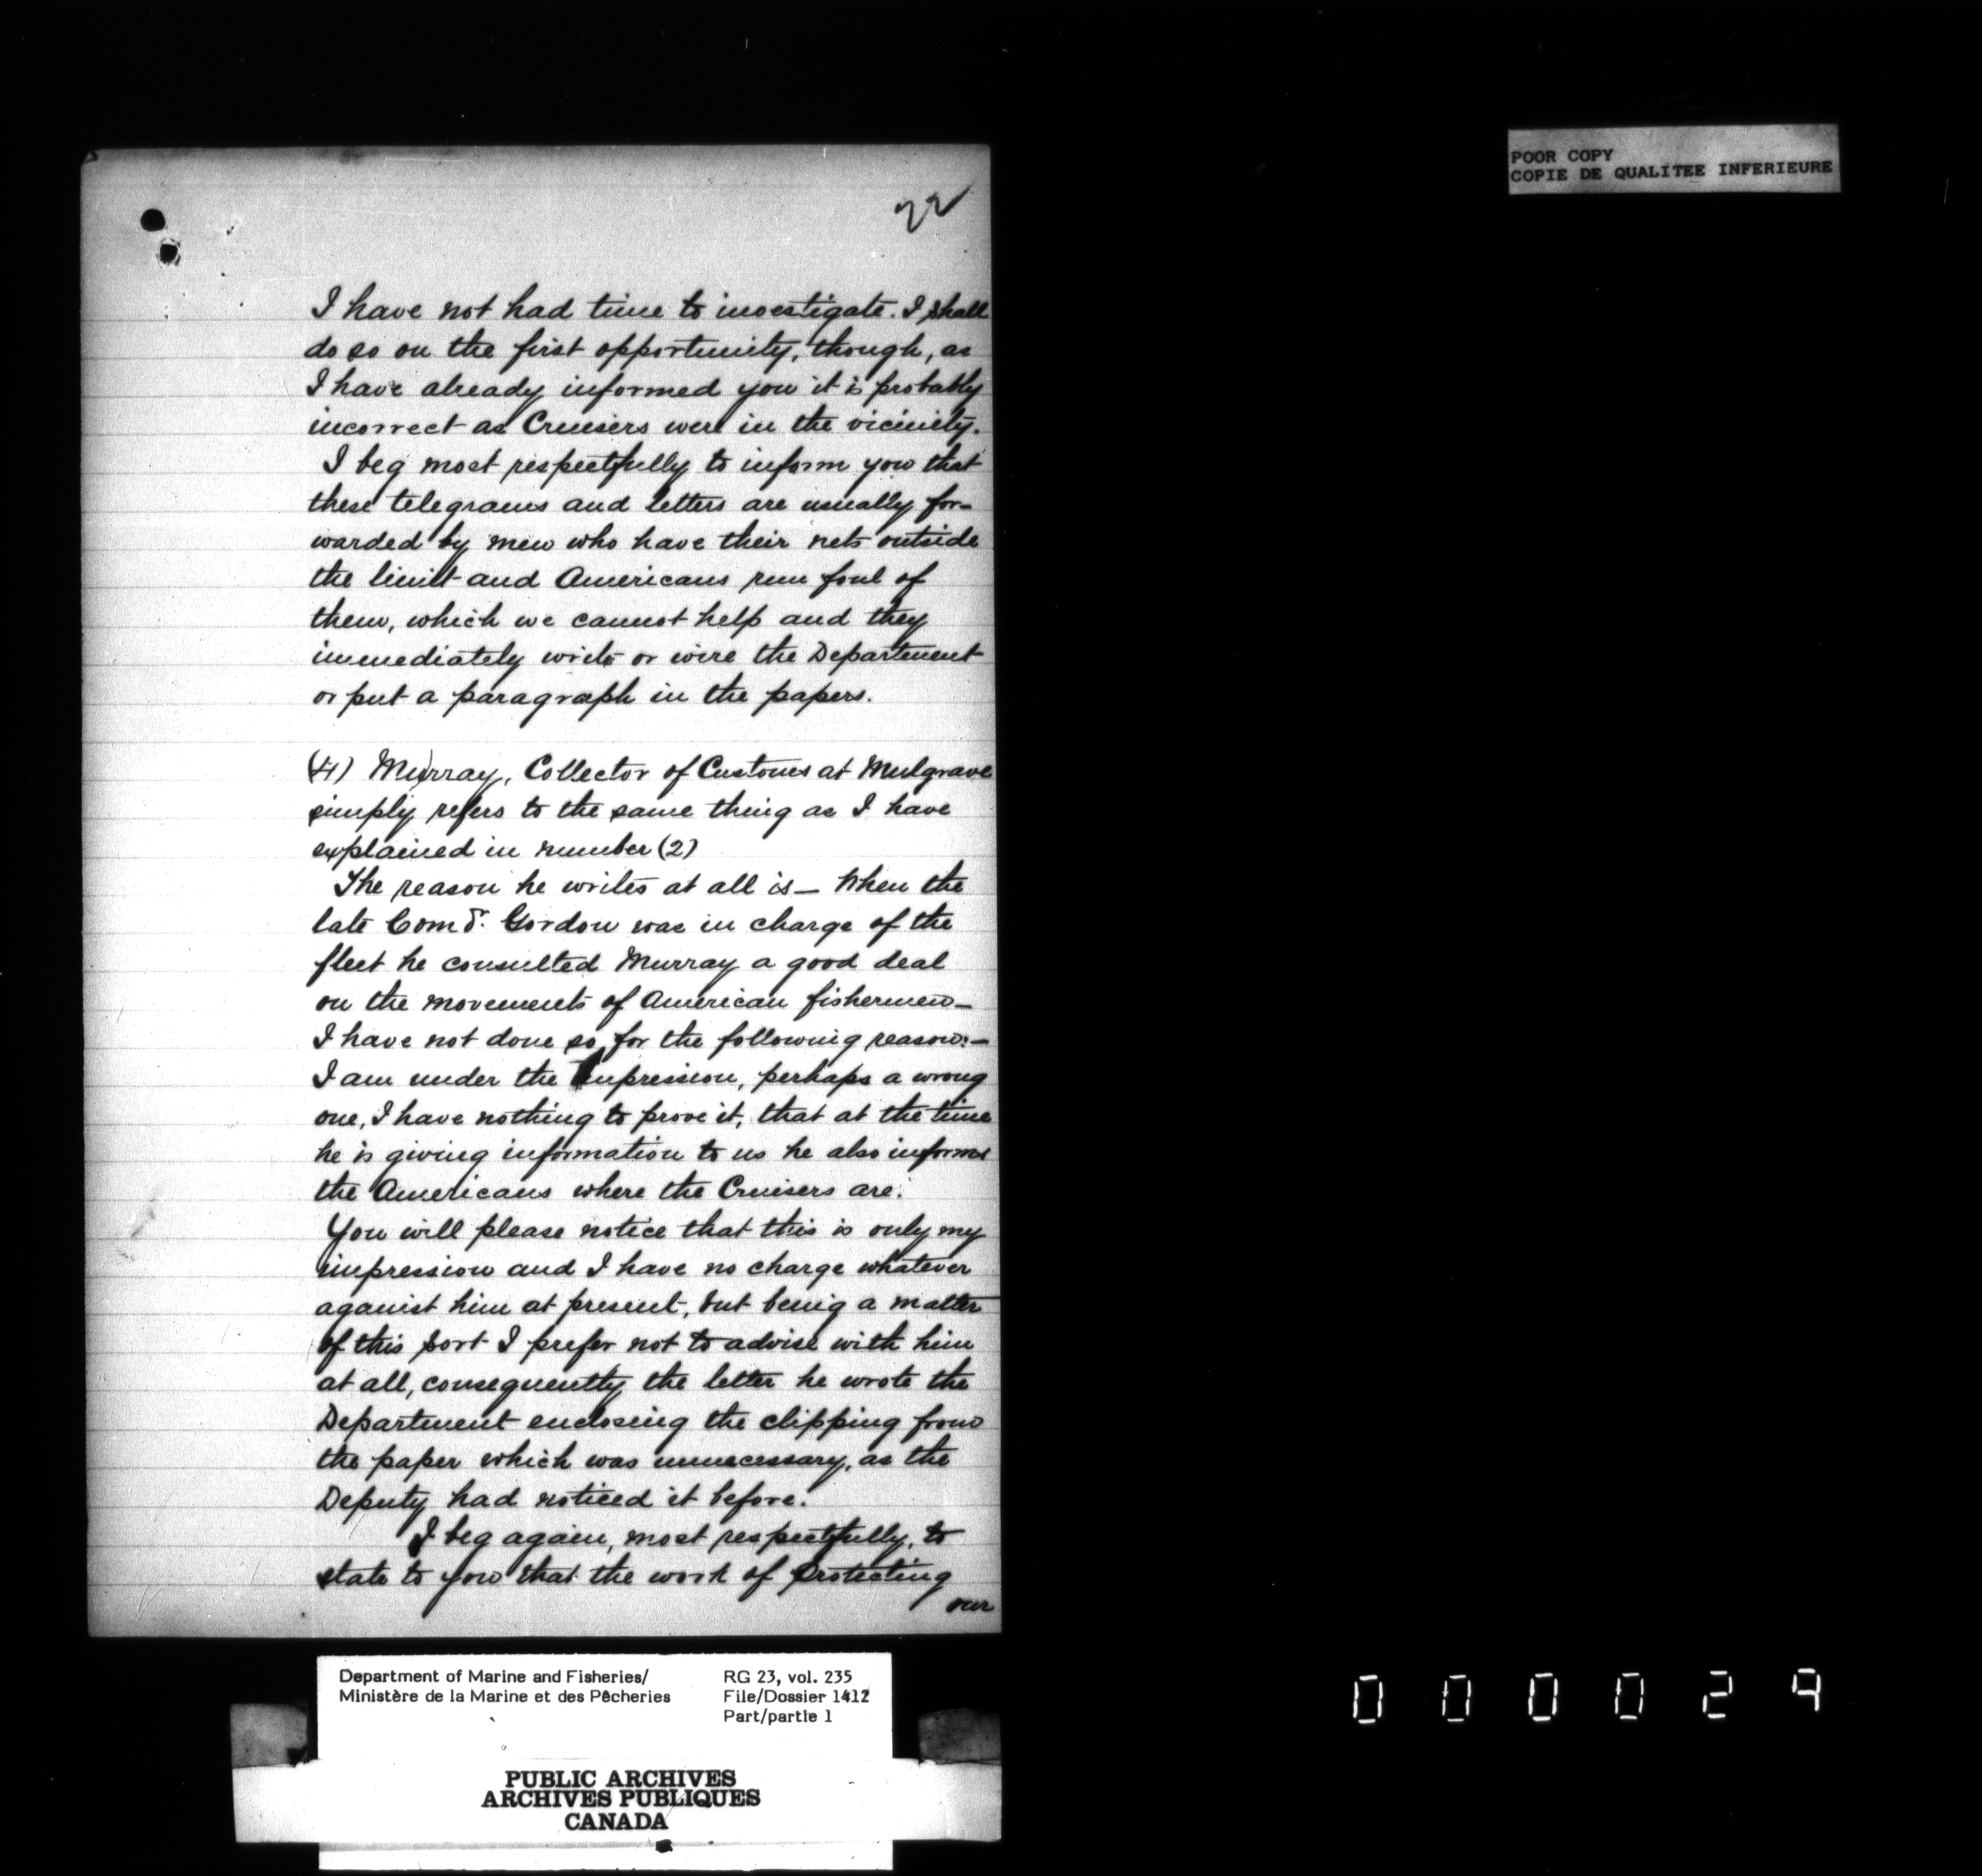 POOR COPY
COPIE DE QUALITEE INFERIEURE
22
I have not had time to investigate. I shall
do so on the first opportunity, though, as
I have already informed you it is probably
incorrect as Cruisers were in the vicinity.
I beg most respectfully to inform you that
these telegrams and letters are usually for-
warded by men who have their nets outside
the limit and Americans run foul of
them, which we cannot help and they
immediately write or wire the Department
or put a paragraph in the papers.
(4) Murray, Collector of Customs at Mulgrave
simply refers to the same thing as I have
explained in number (2)
The reason he writes at all is — When the
late Comdr. Gordon was in charge of the
fleet he consulted Murray a good deal
on the movements of American fishermen —
I have not done so, for the following reason:—
I am under the impression, perhaps a wrong
one, I have nothing to prove it, that at the time
he is giving information to us he also informs
the Americans where the Cruisers are.
You will please notice that this is only my
impression and I have no charge whatever
against him at present, but being a matter
of this sort I prefer not to advise with him
at all, consequently the letter he wrote the
Department enclosing the clipping from
the paper which was unnecessary, as the
Deputy had noticed it before.
I beg again, most respectfully, to
state to you that the work of protecting
our
Department of Marine and Fisheries/ RG 23, vol. 235
Ministère de la Marine et des Pêcheries File/Dossier 1412
Part/partie 1
PUBLIC ARCHIVES
ARCHIVES PUBLIQUES
CANADA
000029